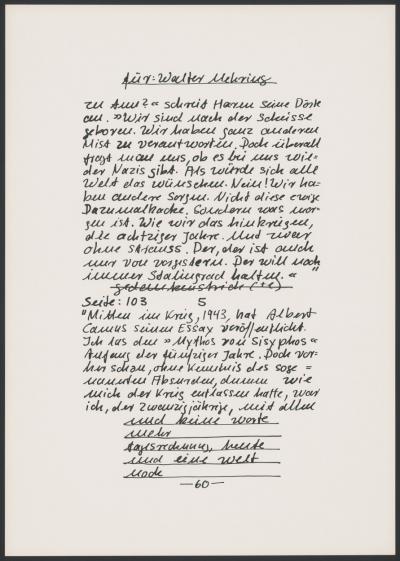 für: Walter Mehring
zu tun?« schreit Harm seine Dörte
an. »Wir sind nach der Scheisse
geboren. Wir haben ganz anderen
Mist zu verantworten. Doch überall
fragt man uns, ob es bei uns wie=
der Nazis gibt. Als würde sich alle
Welt das wünschen. Nein! Wir ha=
ben andere Sorgen. Nicht diese ewige
Dazumalkacke. Sondern was mor=
gen ist. Wie wir das hinkriegen,
die achtziger Jahre. Und zwar
ohne Strauss. Der, der ist auch
nur von vorgestern. Der will noch
immer Stalingrad halten.« "
Seite: 103 5
"Mitten im Krieg, 1943, hat Albert
Camus seinen Essay veröffentlicht.
Ich las den »Mythos von Sisyphos«
Anfang der fünfziger Jahre. Doch vor=
her schon, ohne Kenntnis des soge=
nannten Absurden, dumm wie
mich der Krieg entlassen hatte, war
ich, der Zwanzigjährige, mit allen
und keine worte
mehr
tagesrechnung, heute
und eine welt
noch
—60—